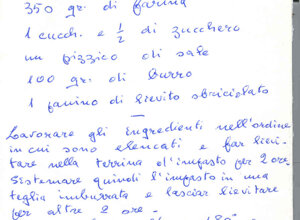 350 gr. di farina
1 cucch. e 1/2 di zucchero
un pizzico di sale
100 gr. di burro
1 panino di lievito sbriciolato
—
Lavorare gli ingredienti nell'ordine
in cui sono elencati e far lievi-
tare nella terrina l'impasto per 2 ore.
Sistemare quindi l'impasto in una
teglia imburrata e lasciar lievitare
per altre 2 ore.